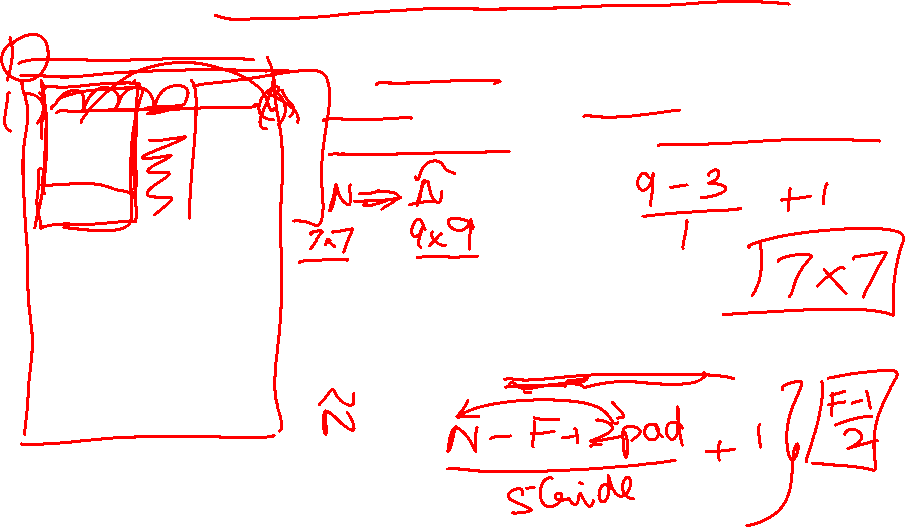 N ⇒ N̂
7x7 9x9
9-3/1 +1
7x7
Ñ
N-F+2pad/stride + 1
F-1/2